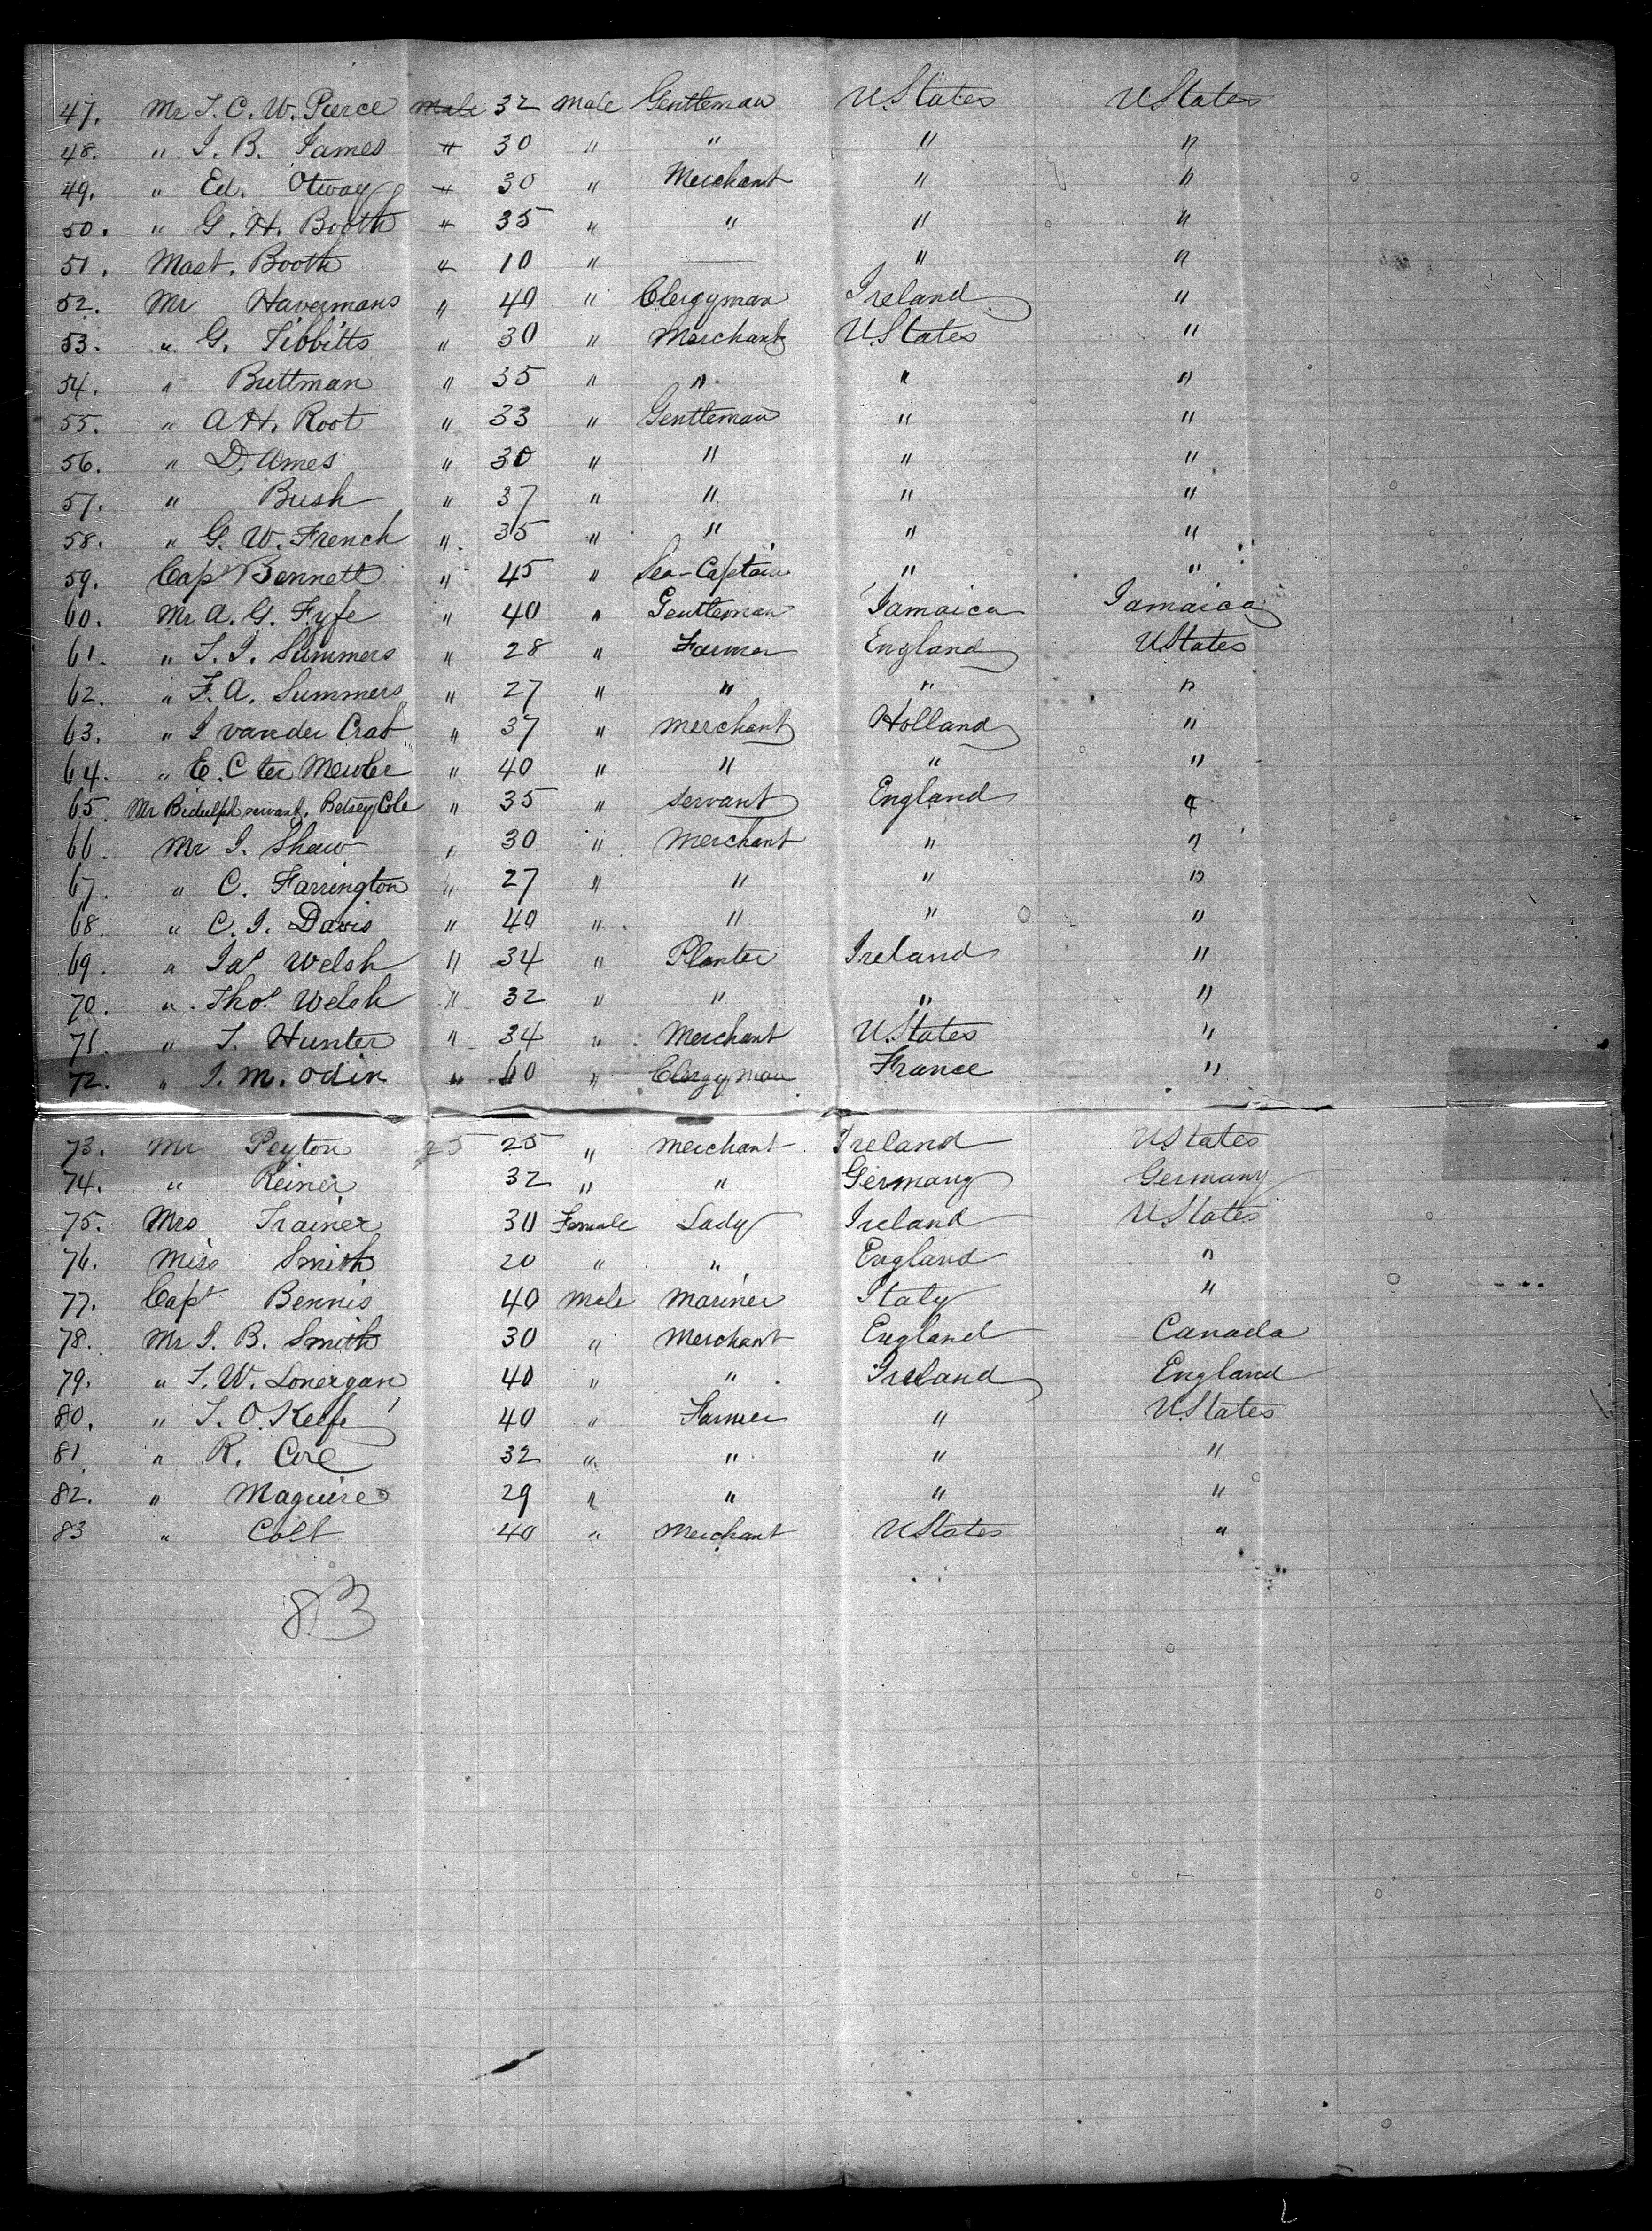 47. Mr J. C. W. Pierce Male 32 Male Gentleman U.States U.States
48. " J. B. James " 30 " " " "
49. " Ed. Otway " 30 " Merchant " "
50. " G. H. Booth " 35 " " " "
51. Mast. Booth " 10 " — " "
52. Mr Havermans " 40 " Clergyman Ireland "
53. " G. Tibbitts " 30 " Merchant U.States "
54. " Buttman " 35 " " " "
55. " A H. Root " 33 " Gentleman " "
56. " D. Ames " 30 " " " "
57. " Bush " 37 " " " "
58. " G. W. French " 35 " " " "
59. Capt Bennett " 45 " Sea-Captain " "
60. Mr A. G. Fyfe " 40 " Gentleman Jamaica Jamaica
61. " T. J. Summers " 28 " Farmer England UStates
62. " F. A. Summers " 27 " " " "
63. " J vander Crab " 37 " merchant Holland "
64. " E. C ter " 40 " " " "
65. Mr Bidulph servant, Betsey Cole " 35 " servant England "
66. Mr J. Shaw " 30 " Merchant " "
67. " C. Farrington " 27 " " " "
68. " C. J. Davis " 40 " " " "
69. " Jas Welsh " 34 " Planter Ireland "
70. " Thos. Welsh " 32 " " " "
71. " T. Hunter " 34 " Merchant U.States "
72. " J. M. Odin " 60 " Clergyman France "
73. Mr Peyton 25 25 " Merchant Ireland UStates
74. " Reiner 32 " " Germany Germany
75. Mrs Trainer 30 Female Lady Ireland U.States
76. Miss Smith 20 " " England "
77. Capt Bennis 40 Male Mariner Italy "
78. Mr J. B. Smith 30 " Merchant England Canada
79. " T. W. Lonergan 40 " " Ireland England
80. " T. O'Keefe 40 " Farmer " U.States
81 " R. 32 " " " "
82. " Maguire 29 " " " "
83 " Colt 40 " Merchant UStates "
83